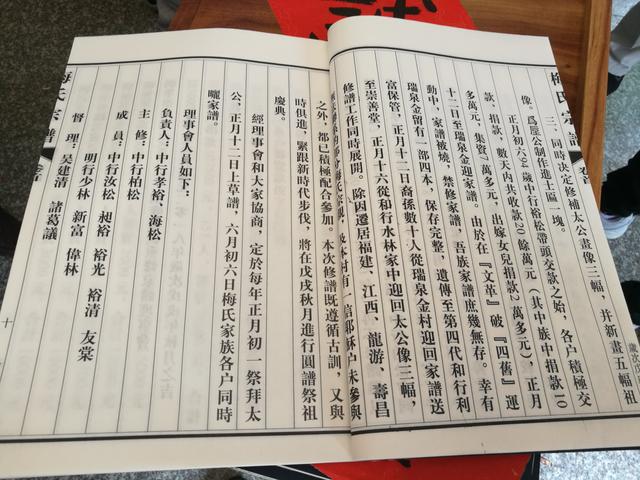 梅氏宗譜
卷首
三、同時決定修補太公畫像三幅，並新畫五幅祖
像。爲歷公制作進士匾一塊。
正月初六94歲中行裕松帶頭交款之始，各户積極交
款、捐款，數天内共收款20餘萬元（其中族中捐款10
多萬元，集資7萬多元，出嫁女兒捐款2萬多元）。正月
十二日至瑞泉金迎家譜。由於在『文革』破『四舊』運
動中，家譜被燒，禁修家譜，吾族家譜庶幾無存。幸有
瑞泉金留有一部四本，保存完整，遺傳至第四代和行利
富保管，正月十二日裔孫數十人從瑞泉金村迎回家譜送
至崇善堂，正月十六從和行水林家中迎回太公像三幅，
修譜工作同時展開。除因遷居福建、江西、龍游、壽昌
及本村有一信耶穌户未參與
之外，都已積極配合參加。本次修譜既遵循古訓，又與
時俱進，緊跟新時代步伐，將在戊戌秋月進行圓譜祭祖
慶典。
經理事會和大家協商，定於每年正月初一祭拜太
公，正月十二日上草譜，六月初六日梅氏家族各户同時
曬家譜。
理事會人員如下：
負責人：中行孝裕、海松
主　修：中行柏松
成　員：中行汝松　昶裕　裕光　裕清　友棠
明行少林　新富　偉林
督　理：吴建清　諸葛議
梅氏宗譜
卷首
十